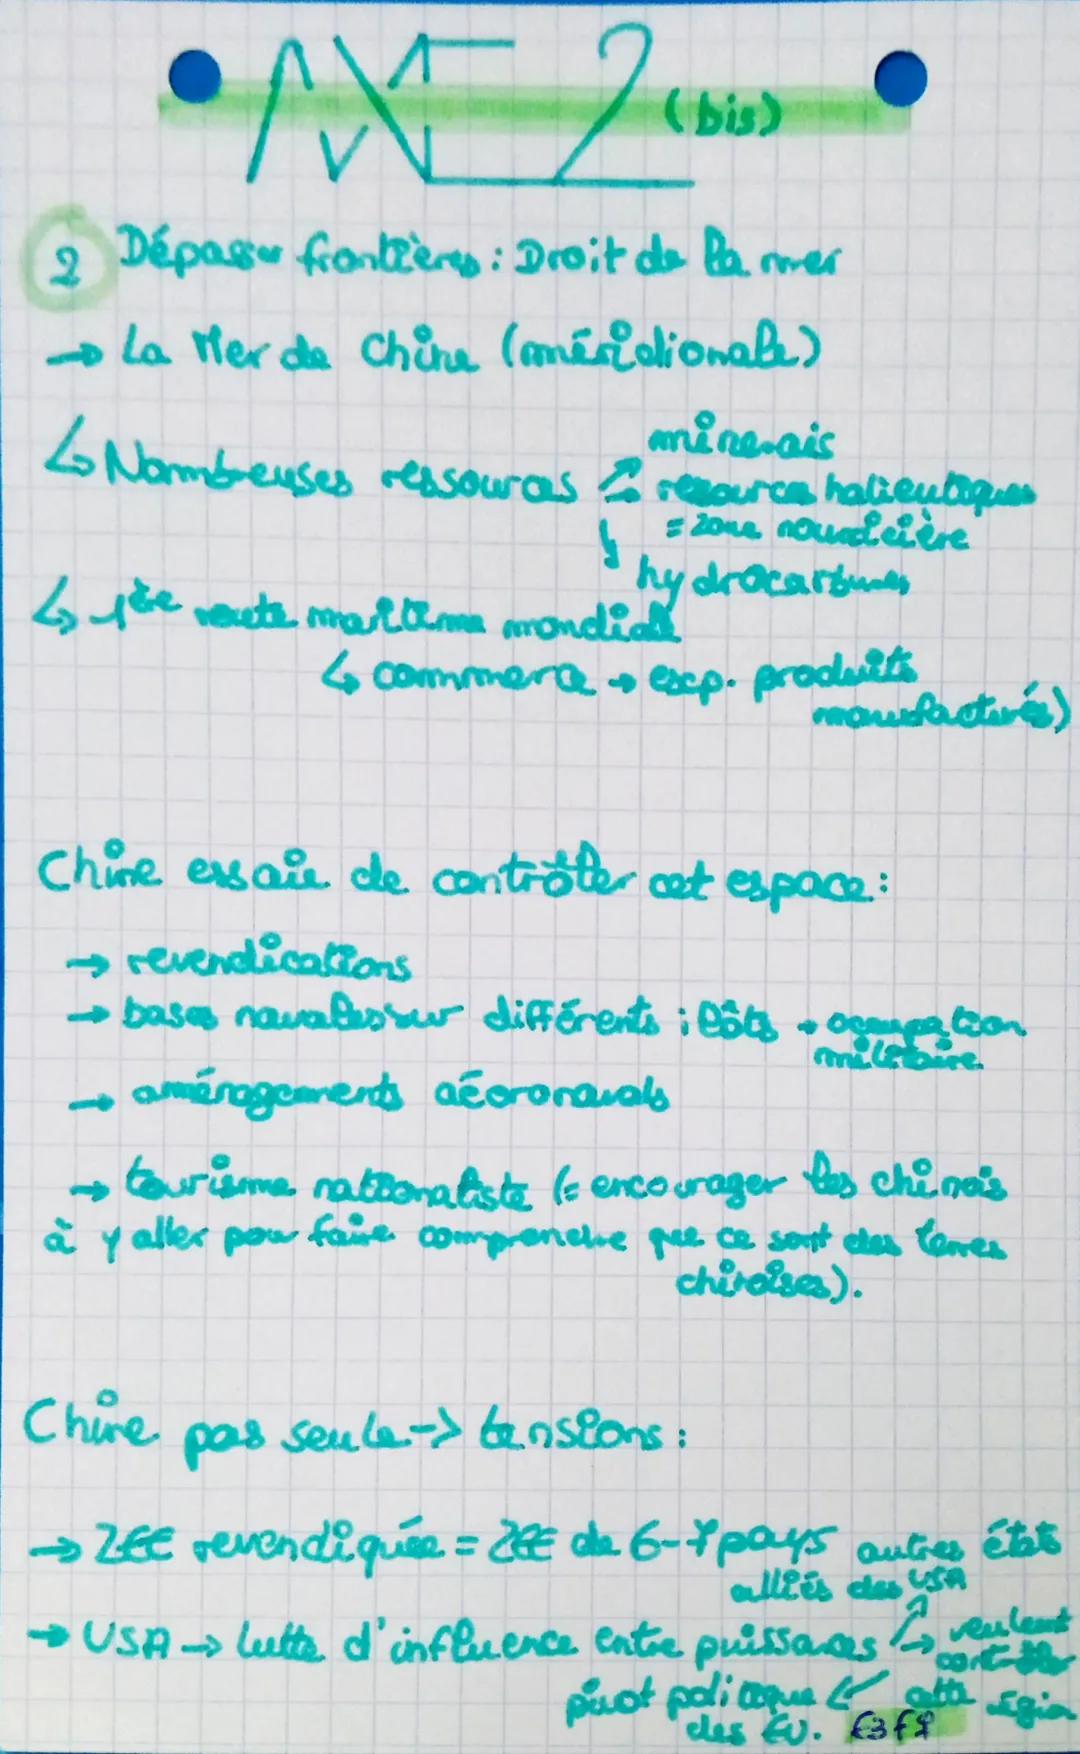 AXE 2 (bis)
2 Dépasser frontières : Droit de la mer
→ La Mer de Chine (méridionale)
↳ Nombreuses ressources ↗ minerais
→ ressources halieutiques
= zone nourricière
↘ hydrocarbures
↳ 1ère route maritime mondiale
↳ commerce → exp. produits
manufacturés)
Chine essaie de contrôler cet espace :
→ revendications
→ bases navales sur différents îlôts → occupation
militaire
→ aménagements aéoronavals
→ tourisme nationaliste (= encourager les chinois
à y aller pour faire comprendre que ce sont des terres
chinoises).
Chine pas seule -> tensions :
→ ZEE revendiquée = ZEE de 6-7 pays
autres états
alliés des USA
→ USA → lutte d'influence entre puissances ↗ → veulent
contrôler
cette région
pivot politique ↙
des EU.
E3F9